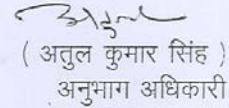 ( अतुल कुमार सिंह )
अनुभाग अधिकारी